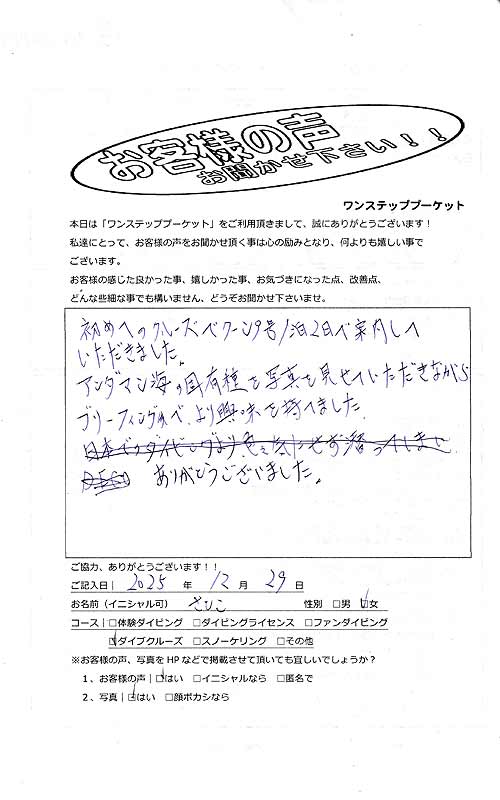 お客様の声
お聞かせ下さい！！
ワンステッププーケット
本日は「ワンステッププーケット」をご利用頂きまして、誠にありがとうございます！
私達にとって、お客様の声をお聞かせ頂く事は心の励みとなり、何よりも嬉しい事で
ございます。
お客様の感じた良かった事、嬉しかった事、お気づきになった点、改善点、
どんな些細な事でも構いません、どうぞお聞かせ下さいませ。
初めてのクルーズで 1泊2日で案内して
いただきました。
アンダマン海の固有種を写真を見せていただきながら
ブリーフィング より興味を持てました。
ありがとうございました。
ご協力、ありがとうございます！！
ご記入日｜ 2025 年 12 月 29 日
お名前（イニシャル可） さひこ 性別 □男 ☑女
コース｜□体験ダイビング □ダイビングライセンス □ファンダイビング
☑ダイブクルーズ □スノーケリング □その他
※お客様の声、写真を HP などで掲載させて頂いても宜しいでしょうか？
1、お客様の声｜☑はい □イニシャルなら □匿名で
2、写真｜☑はい □顔ボカシなら